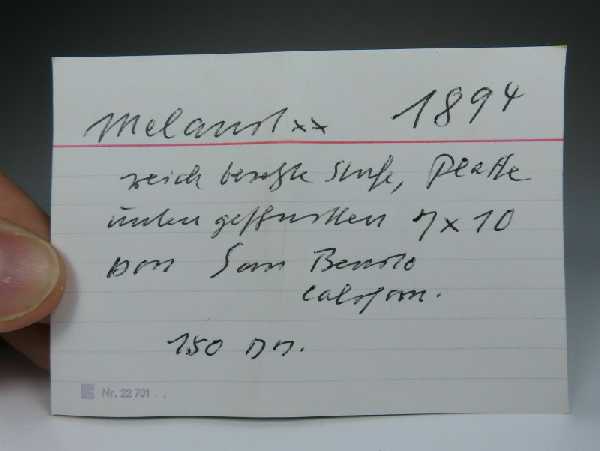 Melanit xx 1894
reich besetzte Stufe, Platte
unten geschnitten 7x10
von San Benito
Californ.
150 DM.
Nr. 22 701